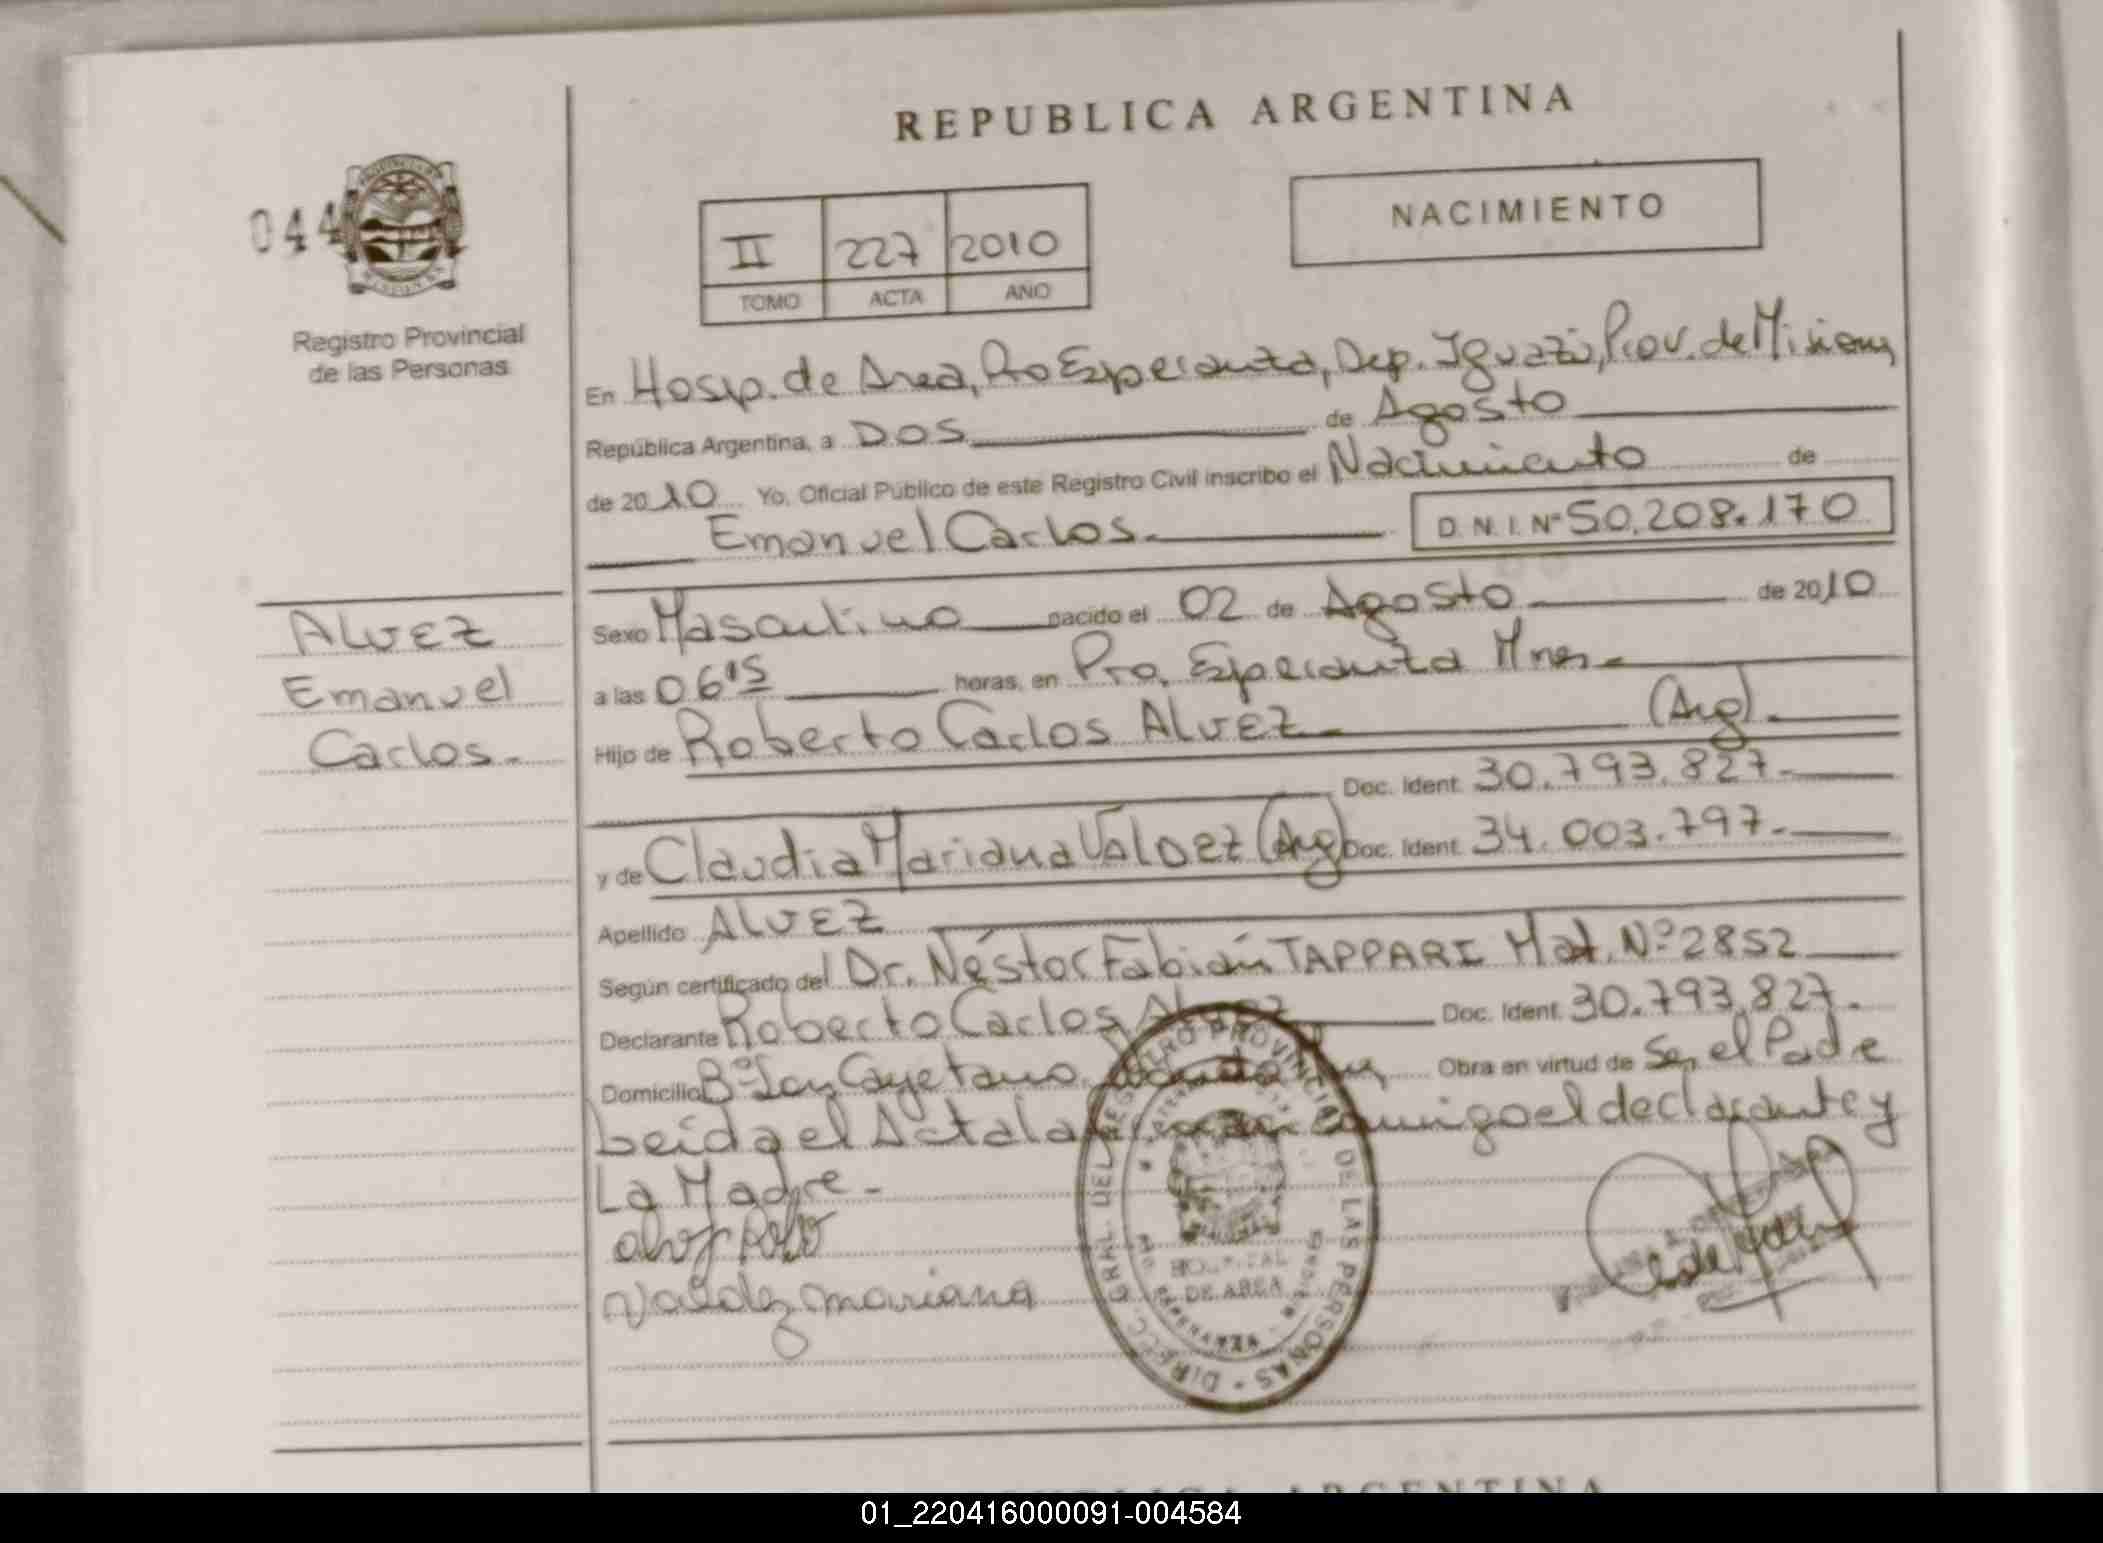 REPUBLICA ARGENTINA
044
NACIMIENTO
II 227 2010
TOMO ACTA AÑO
Registro Provincial
de las Personas
En Hosp. de Area, Pto Esperanza, Dep. Iguazú, Prov. de Misiones
República Argentina, a DOS de Agosto
de 2010 Yo, Oficial Público de este Registro Civil inscribo el Nacimiento de
Emanuel Carlos.- D.N.I. Nº 50.208.170
ALVEZ
Emanuel
Carlos.-
Sexo Masculino nacido el 02 de Agosto de 2010
a las 06 15 horas, en Pto. Esperanza Mnes.-
Hijo de Roberto Carlos ALVEZ.- (Arg).-
Doc. Ident. 30.793.827.-
y de Claudia Mariana VALDEZ (Arg) Doc. Ident. 34.003.797.-
Apellido ALVEZ
Según certificado del Dr. Néstor Fabián TAPPARI Mat. Nº 2852
Declarante Roberto Carlos Alvez Doc. Ident. 30.793.827.-
Domicilio Bº San Cayetano, Obra en virtud de Ser el Padre
Leida el Acta la conmigo el declarante y
La Madre.-
Valdez mariana
DIRECC. GRAL. DEL REGISTRO PROVINCIAL DE LAS PERSONAS
HOSPITAL
DE AREA
REPUBLICA ARGENTINA
01_220416000091-004584